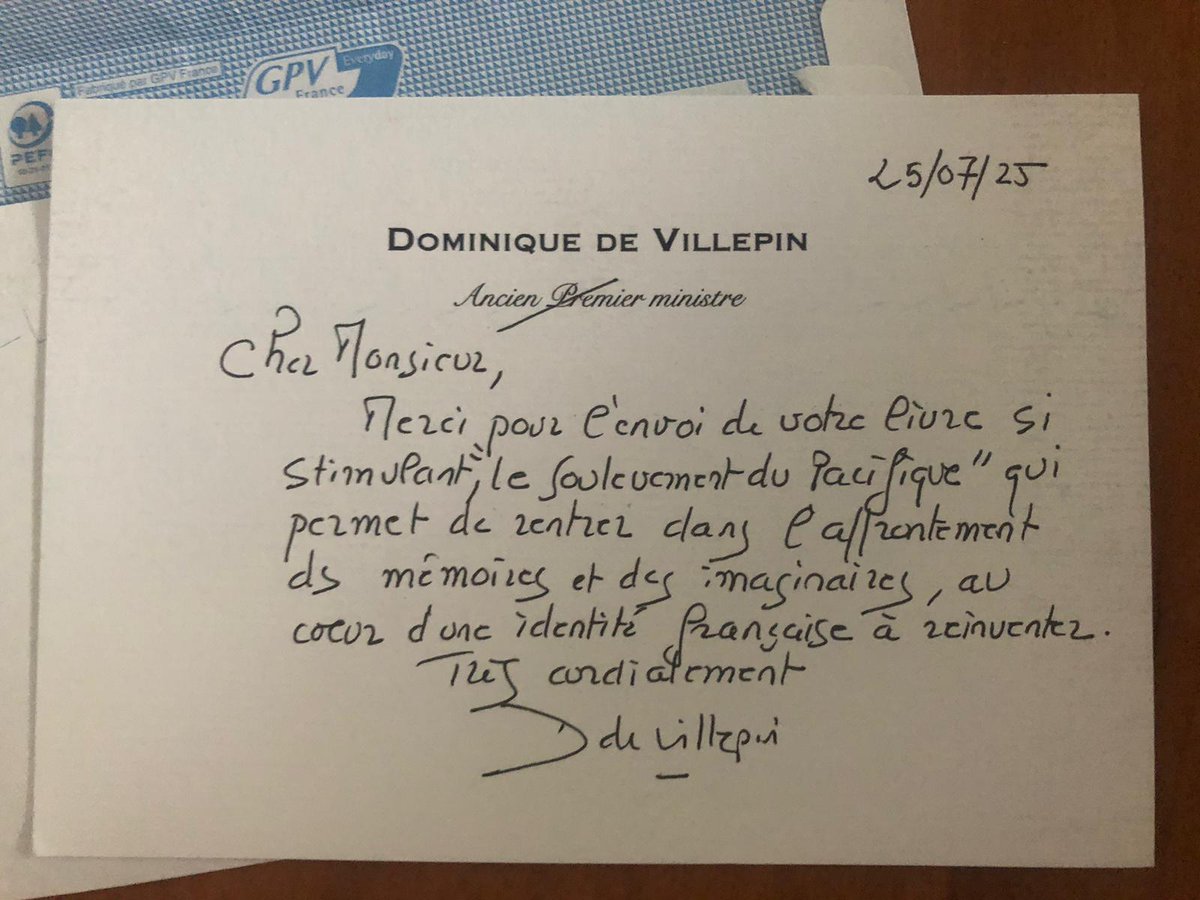 Fabriqué par GPV France
GPV
France
Everyday
PEFC
25/07/25
DOMINIQUE DE VILLEPIN
Ancien Premier ministre
Cher Monsieur,
Merci pour l'envoi de votre livre si
stimulant, "le soulevement du Pacifique" qui
permet de rentrer dans l'affrontement
ds mémoires et des imaginaires, au
coeur d'une identité française à réinventer.
Très cordialement
D de Villepin